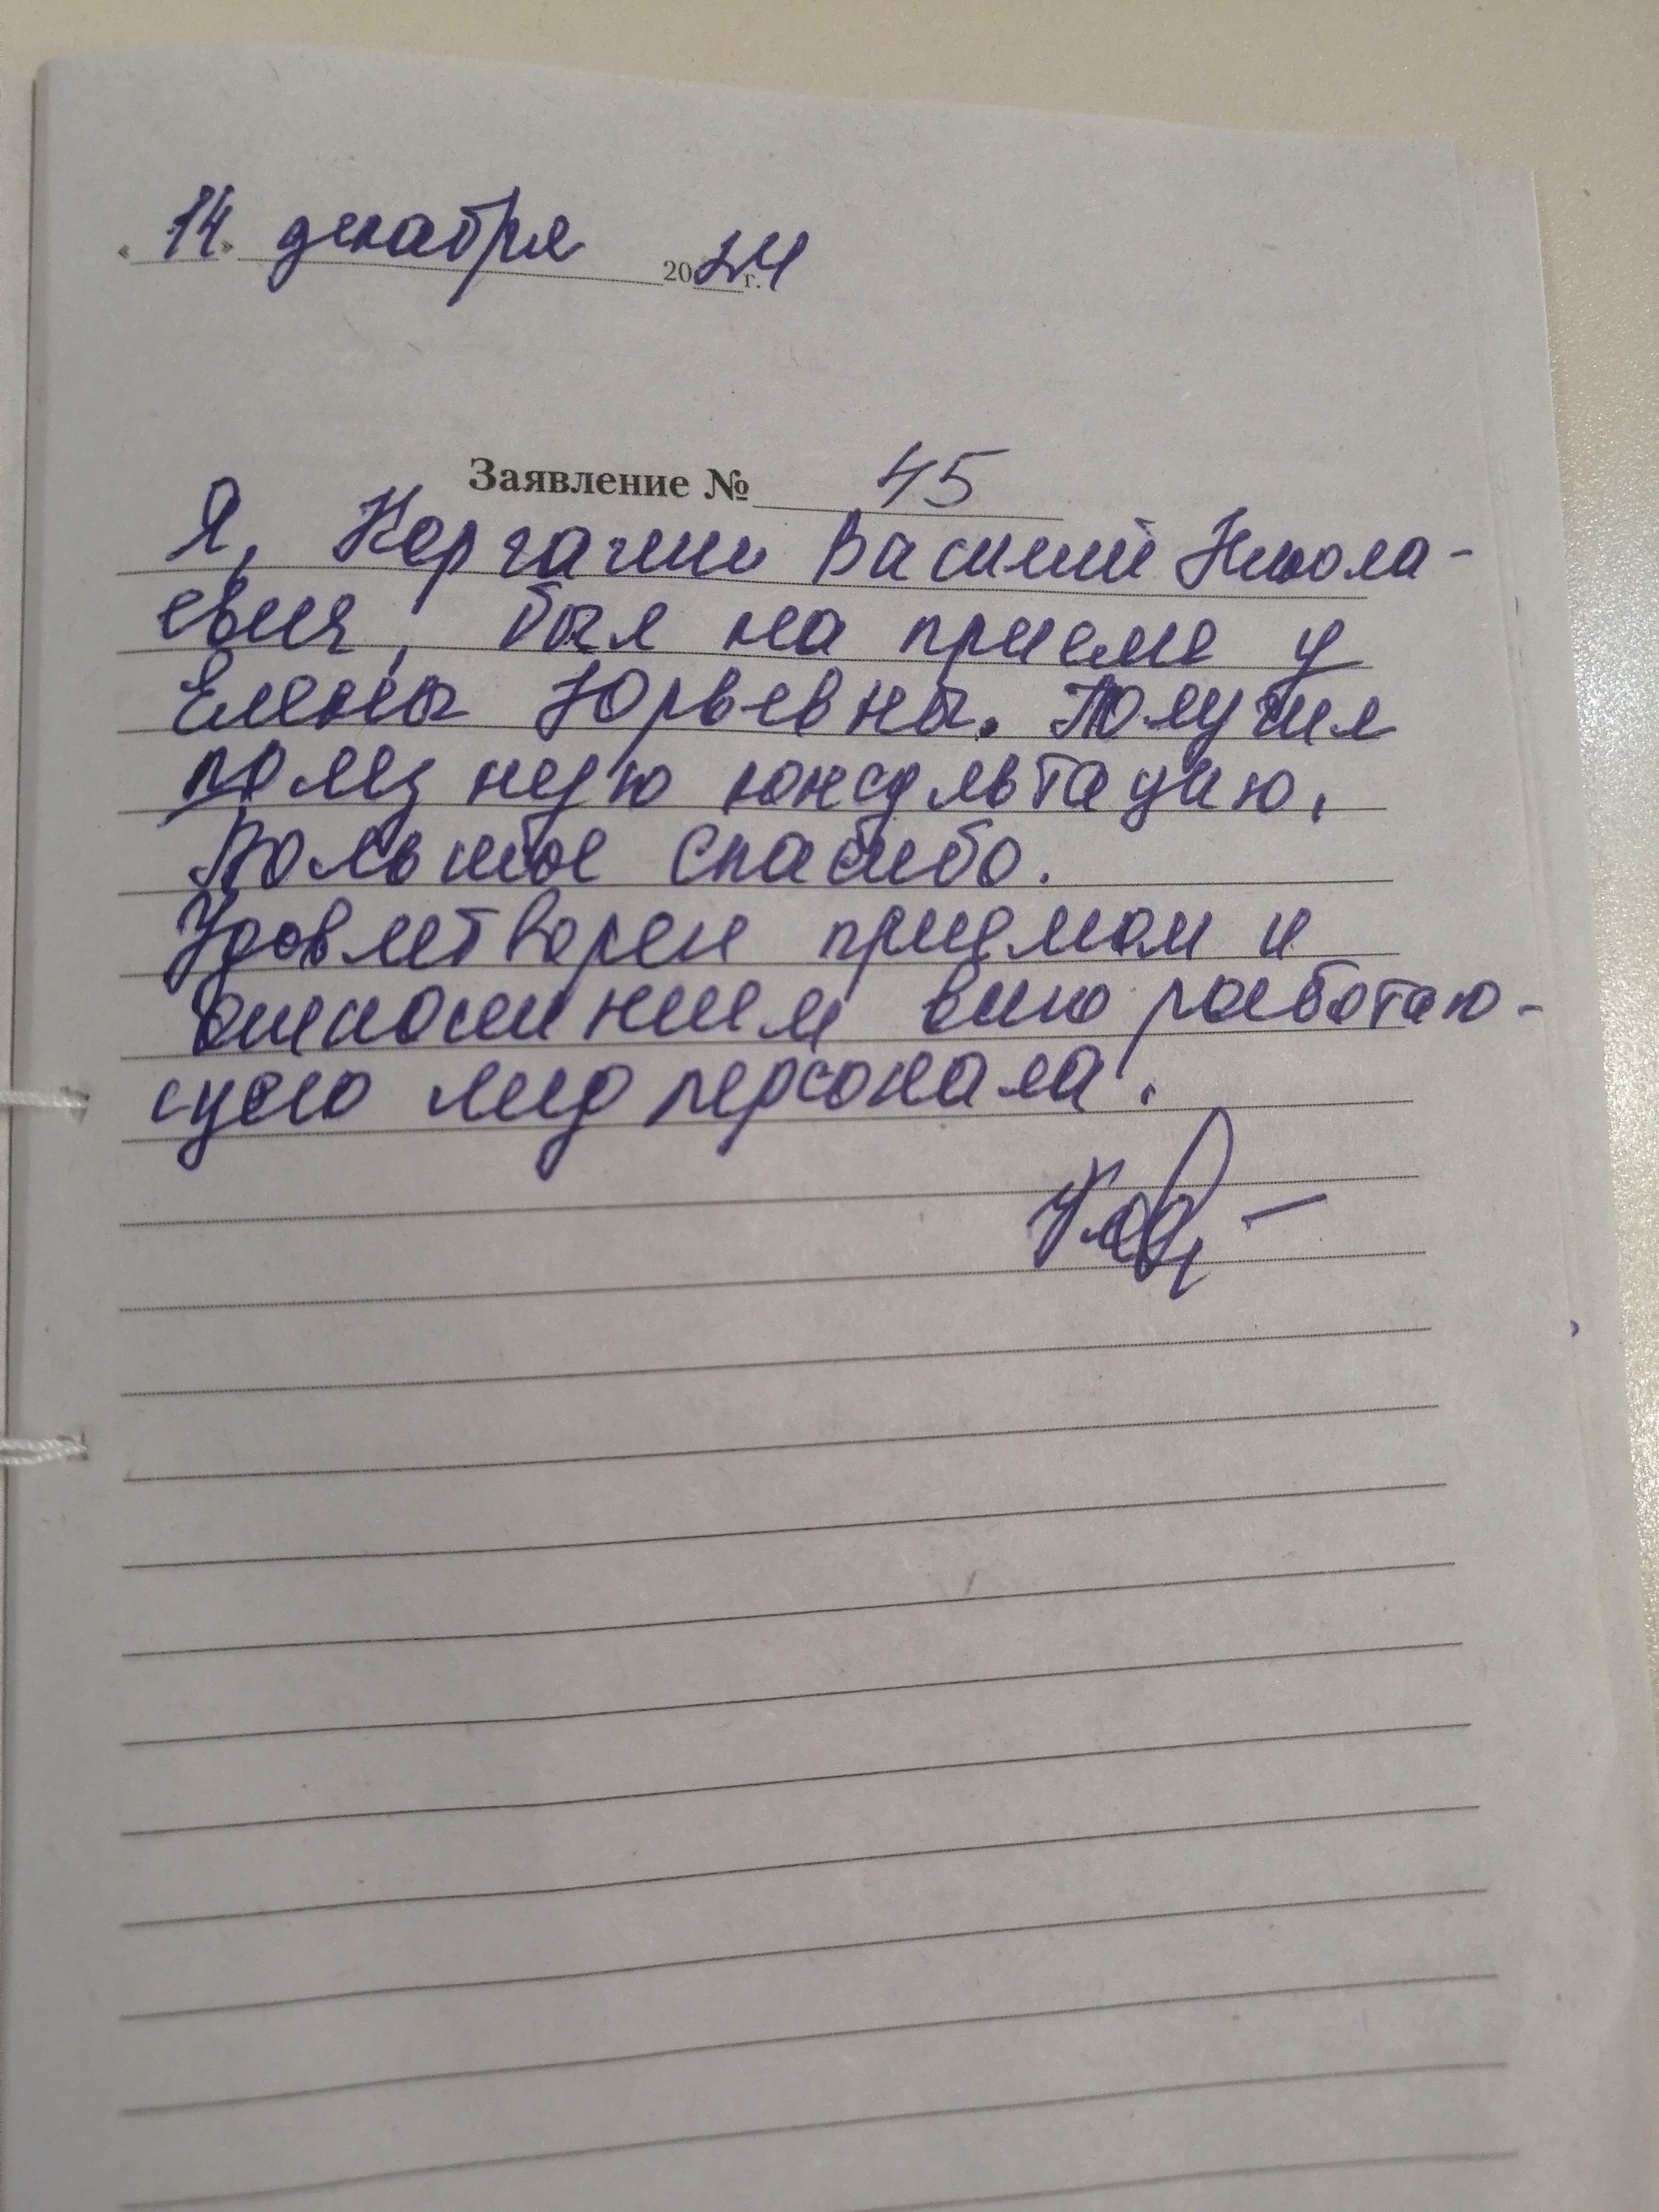 «14» декабря 2024 г.
Заявление № 45
Я, Василий Никола-
евич, был на приеме у
Елены Юрьевны. Получил
полезную консультацию.
Большое спасибо.
Удовлетворен приемом и
отношением всего работаю-
щего мед персонала.